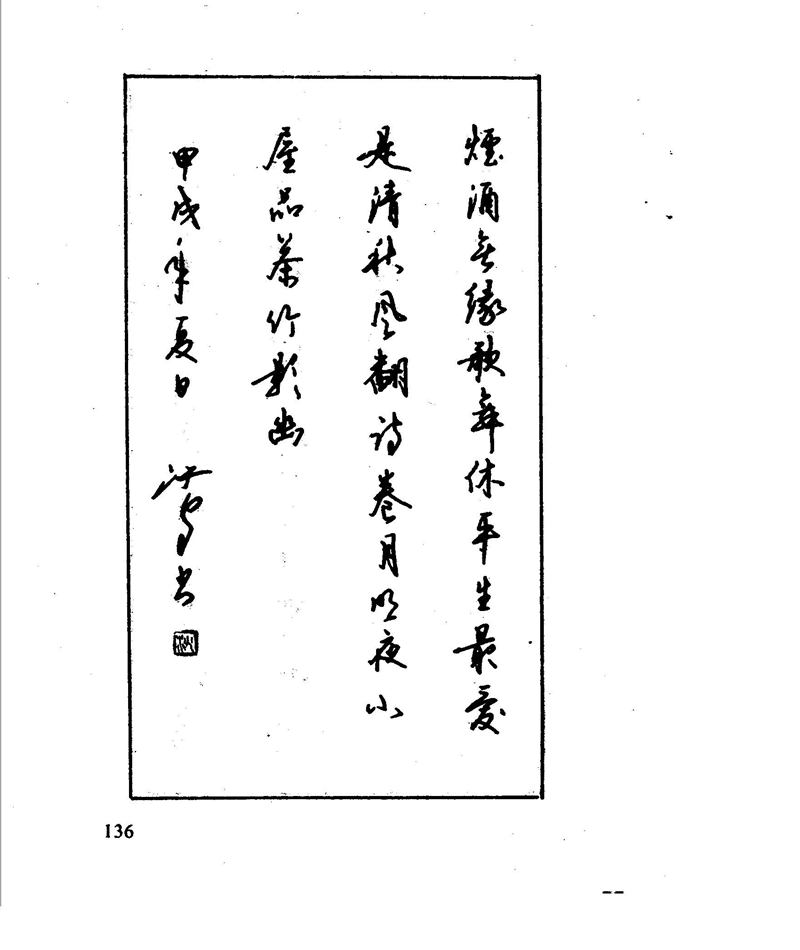 煙酒無緣歌舞休平生最愛
是清秋風翻詩卷月明夜小
屋品茶竹影幽
甲戌年夏日 书
136